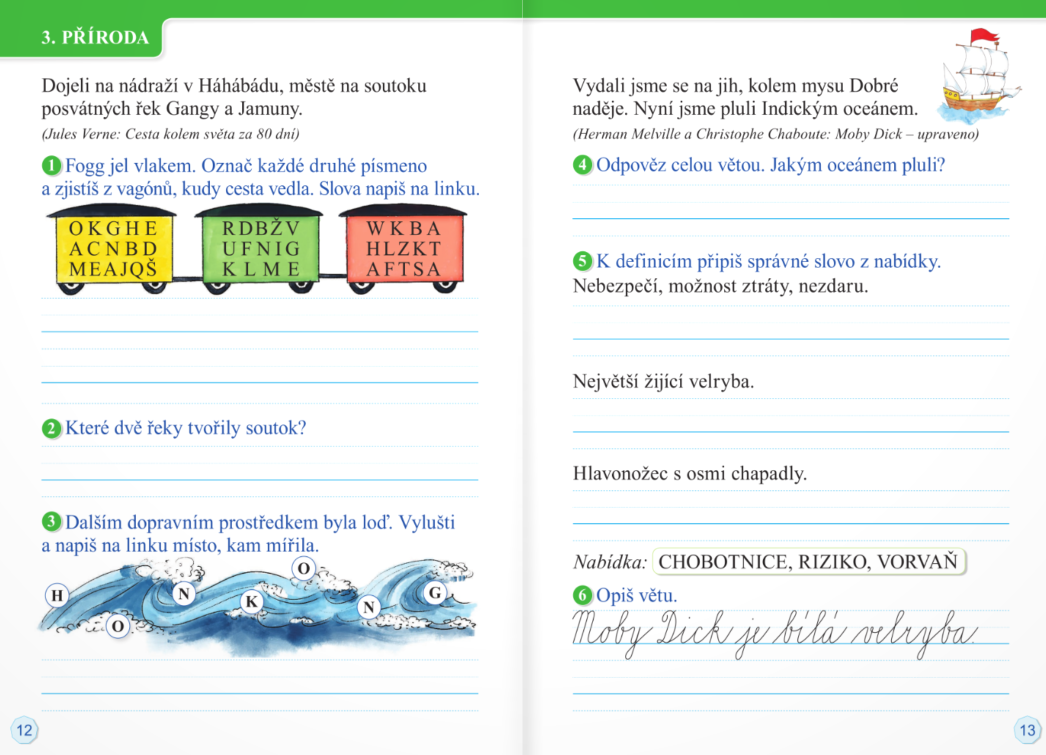 3. PŘÍRODA
Dojeli na nádraží v Háhábádu, městě na soutoku
posvátných řek Gangy a Jamuny.
(Jules Verne: Cesta kolem světa za 80 dní)
1 Fogg jel vlakem. Označ každé druhé písmeno
a zjistíš z vagónů, kudy cesta vedla. Slova napiš na linku.
O K G H E
A C N B D
M E A J Q Š
R D B Ž V
U F N I G
K L M E
W K B A
H L Z K T
A F T S A
2 Které dvě řeky tvořily soutok?
3 Dalším dopravním prostředkem byla loď. Vylušti
a napiš na linku místo, kam mířila.
H
O
N
K
O
N
G
12
Vydali jsme se na jih, kolem mysu Dobré
naděje. Nyní jsme pluli Indickým oceánem.
(Herman Melville a Christophe Chaboute: Moby Dick – upraveno)
4 Odpověz celou větou. Jakým oceánem pluli?
5 K definicím připiš správné slovo z nabídky.
Nebezpečí, možnost ztráty, nezdaru.
Největší žijící velryba.
Hlavonožec s osmi chapadly.
Nabídka: CHOBOTNICE, RIZIKO, VORVAŇ
6 Opiš větu.
Moby Dick je bílá velryba.
13